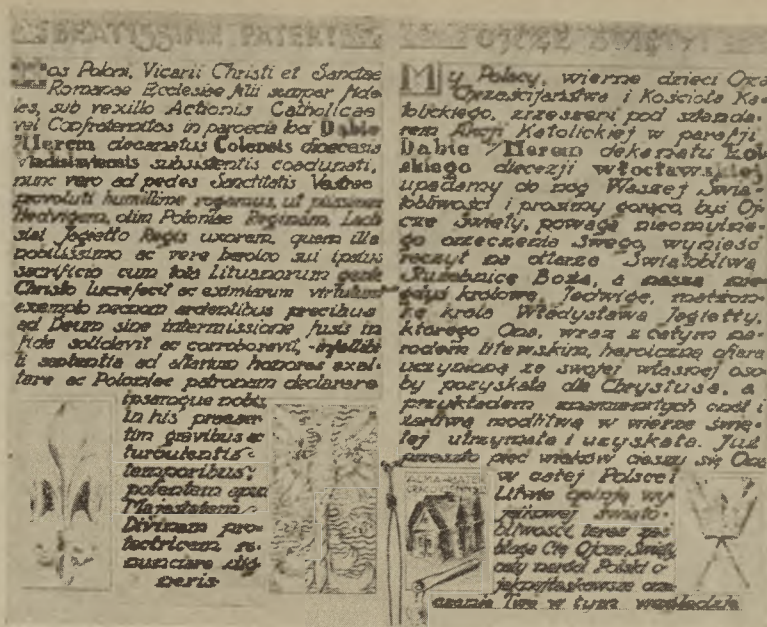 BEATISSIME PATER!
Nos Poloni, Vicarii Christi et Sanctae
Romanae Ecclesiae filii semper fide
les, sub vexillo Actionis Catholicae
vel Confraternitos in paroecia loci Dąbie
n/Nerem decanatus Colensis dioecesis
Vladislaviensis subsistentis coadunati,
nunc vero ad pedes Sanctitatis Vestrae
provoluti humillime rogamus, ut piissimam
Hedvigem, olim Poloniae Reginam, Ladi
slai Jagiełło Regis uxorem, quem illa
nobilissimo ac vere heroico sui ipsius
sacrificio cum tota Lituanorum gente
Christo lucrefecit ac eximiarum virtutum
exemplo necnon ardentibus precibus
ad Deum sine intermissione fusis in
fide solidavit ac corroboravit, infallibi
li sapientia ad altarium honores exal-
tare ac Poloniae patronam declarare
ipsamque nobis
in his praeser
tim gravibus ac
turbulentis
temporibus
potentem apud
Majestatem
Divinam pro-
tectricem re-
nunciare dig-
neris
OJCZE ŚWIĘTY!
My Polacy, wierne dzieci Ojca
Chrześcijaństwa i Kościoła Ka-
tolickiego, zrzeszeni pod sztanda-
rem Akcji Katolickiej w parafji
Dąbie n/Nerem dekanatu Kol-
skiego diecezji włocławskiej
upadamy do nóg Waszej Świą-
tobliwości i prosimy gorąco, byś Oj-
cze Święty, powagą nieomylne-
go orzeczenia Swego, wynieść
raczył na ołtarze Świątobliwą
Służebnicę Bożą, a naszą nie-
gdyś królowę, Jadwigę, małżon-
kę króla Władysława Jagiełły,
którego Ona, wraz z całym na-
rodem litewskim, heroiczną ofiarą
uczynioną ze swojej własnej oso-
by pozyskała dla Chrystusa, a
przykładem znamienitych cnót i
żarliwą modlitwą w wierze świę-
tej utrzymała i uzyskała. Już
przeszło pięć wieków cieszy się Ona
w całej Polsce i
Litwie opinją wy
jątkowej świąto-
bliwości, teraz zaś
błaga Cię Ojcze Święty
cały naród Polski o
jaknajłaskawsze orze
czenie Twe w tym względzie